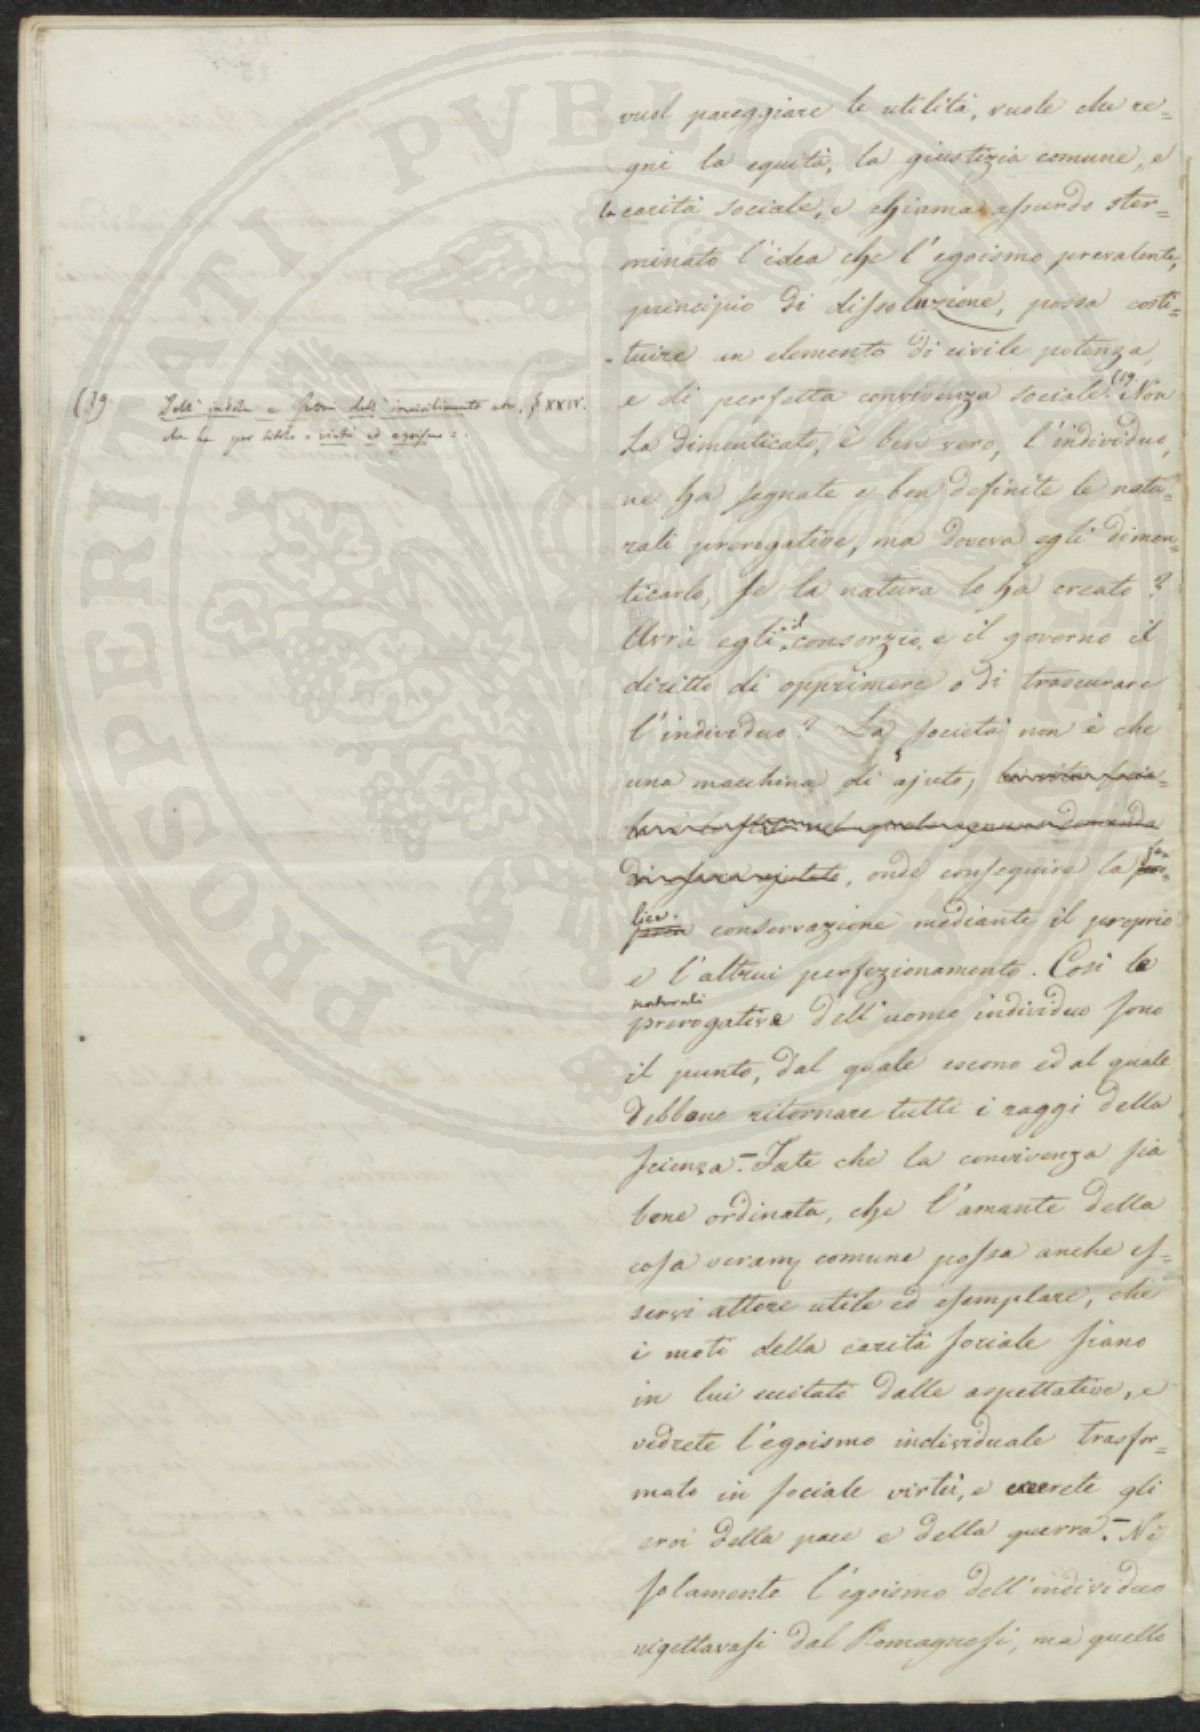 vuol pareggiare le utilità, vuole che re=
gni la equità, la giustizia comune, e
la carità sociale, e chiama assurdo ster=
minato l'idea che l'egoismo prevalente,
principio di dissoluzione, possa costi=
tuire un elemento di civile potenza,
e di perfetta convivenza sociale (19. Non
ha dimenticato, è ben vero, l'individuo,
ne ha segnate e ben definite le natu=
rali prerogative, ma doveva egli dimen=
ticarlo, se la natura lo ha creato?
Avrà egli il consorzio, e il governo il
diritto di opprimere o di trascurare
l'individuo? La società non è che
una macchina di ajuto,
onde conseguire la fe=
lice conservazione mediante il proprio
e l'altrui perfezionamento. Così le
naturali
prerogative dell'uomo individuo sono
il punto, dal quale escono ed al quale
debbono ritornare tutti i raggi della
scienza. – Fate che la convivenza sia
bene ordinata, che l'amante della
cosa veram comune possa anche es=
servi attore utile ed esemplare, che
i moti della carità sociale siano
in lui suscitati dalle aspettative, e
vedrete l'egoismo individuale trasfor=
mato in sociale virtù, e avrete gli
eroi della pace e della guerra. – Nè
solamente l'egoismo dell'individuo
rigettavasi dal Romagnosi, ma quello
(19 Dell'indole e fattori dell'incivilimento § XXIV.
che ha per titolo = virtù ed egoismo =.
PROSPERITATI PVBLICAE